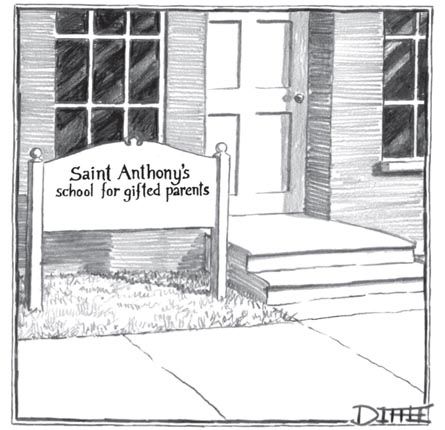 Saint Anthony's
school for gifted parents